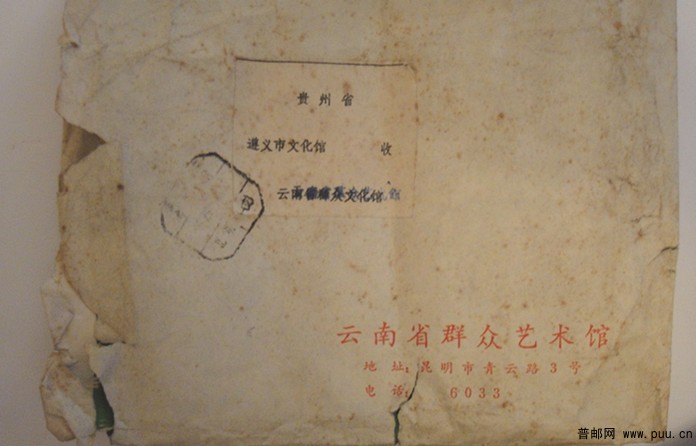 贵州省
遵义市文化馆 收
云南省群众文化馆
云南省群众艺术馆
地址：昆明市青云路3号
电话：6033
普邮网 www.puu.cn